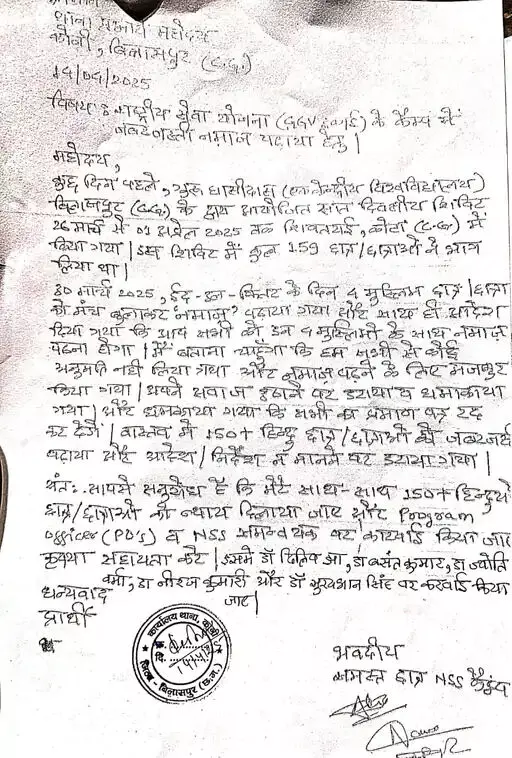 थाना प्रभारी महोदय
कोनी, बिलासपुर (C.G.)
14/04/2025
विषय : राष्ट्रीय सेवा योजना (GGV इकाई) के कैम्प में
जबरदस्ती नमाज पढ़ाया हेतु |
महोदय,
कुछ दिन पहले, गुरु घासीदास (एक केन्द्रीय विश्वविद्यालय)
बिलासपुर (C.G.) के द्वारा आयोजित सात दिवसीय शिविर
26 मार्च से 01 अप्रैल 2025 तक शिवतराई, कोटा (C.G.) में
किया गया | इस शिविर में कुल 159 छात्र/छात्राओं ने भाग
लिया था |
30 मार्च 2025, ईद-उल-फितर के दिन 4 मुस्लिम छात्र/छात्रा
को मंच बुलाकर 'नमाज' पढ़ाया गया और साथ ही आदेश
दिया गया कि आप सभी को इन 4 मुस्लिमों के साथ नमाज़
पढ़ना होगा | मैं बताना चाहूँगा कि हम सभी से कोई
अनुमति नहीं लिया गया और नमाज पढ़ने के लिए मजबूर
किया गया | अपने आवाज उठाने पर डराया व धमकाया
गया | और धमकाया गया कि सभी का प्रमाण पत्र रद्द
कर देंगे | वास्तव में 150+ हिन्दू छात्र/छात्राओं को जबरजस्ती
पढ़ाया और आदेश/निर्देश न मानने पर डराया गया |
अंत: आपसे अनुरोध है कि मेरे साथ-साथ 150+ हिन्दुओं
छात्र/छात्राओं को न्याय दिलाया जाए और Program
Officer (PO's) व NSS समन्वयक पर कार्यवाई किया जाए
कृपया सहायता करें | इसमें डॉ दिलीप झा, डॉ बसंत कुमार, डॉ ज्योति
वर्मा, डॉ नीरज कुमारी और डॉ सूर्यभान सिंह पर करवाई किया
जाए |
धन्यवाद
प्रार्थी
कार्यालय थाना, कोनी
क्र.
दि.
जिला - बिलासपुर (छ.ग.)
भवदीय
समस्त छात्र NSS कैडेट्स